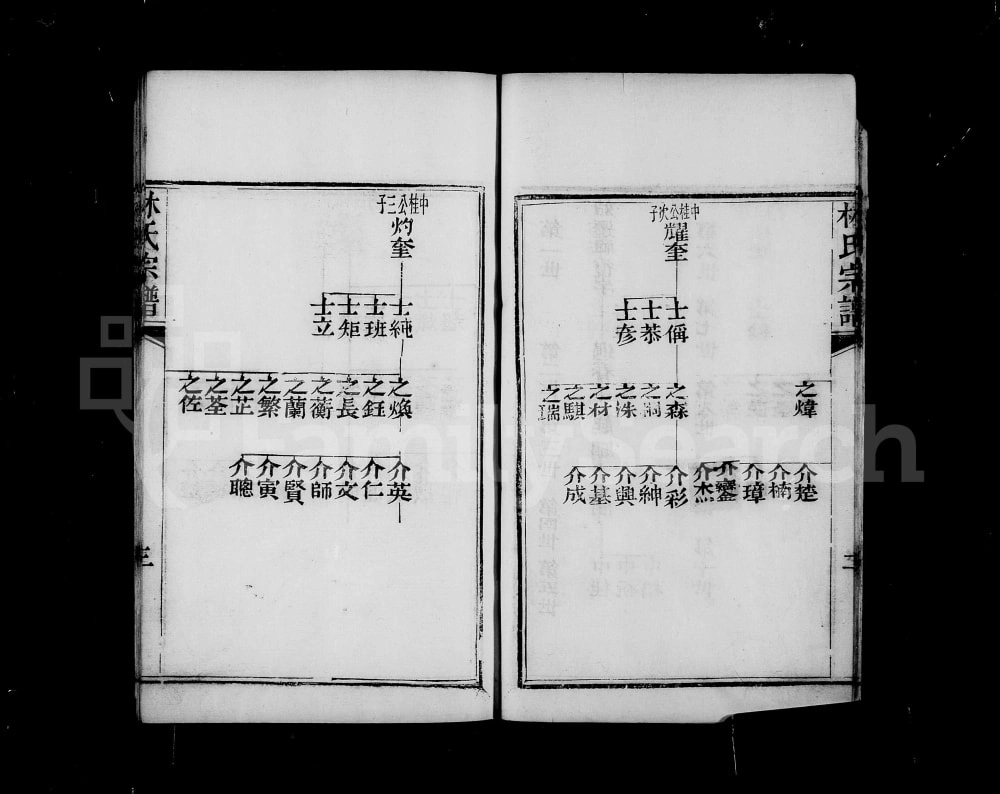 林氏宗譜
之煒
介楚
介楠
介璋
介鑾
介杰
中桂公次子
耀奎
士偁
士恭
士彥
之森
之洙
之材
之騏
介彩
介紳
介興
介基
介成
三
中桂公三子
灼奎
士純
士班
士矩
士立
之煥
之鈺
之長
之蘅
之蘭
之繁
之芷
之荃
之佐
介英
介仁
介文
介師
介賢
介寅
介聰
林氏宗譜
三
FamilySearch